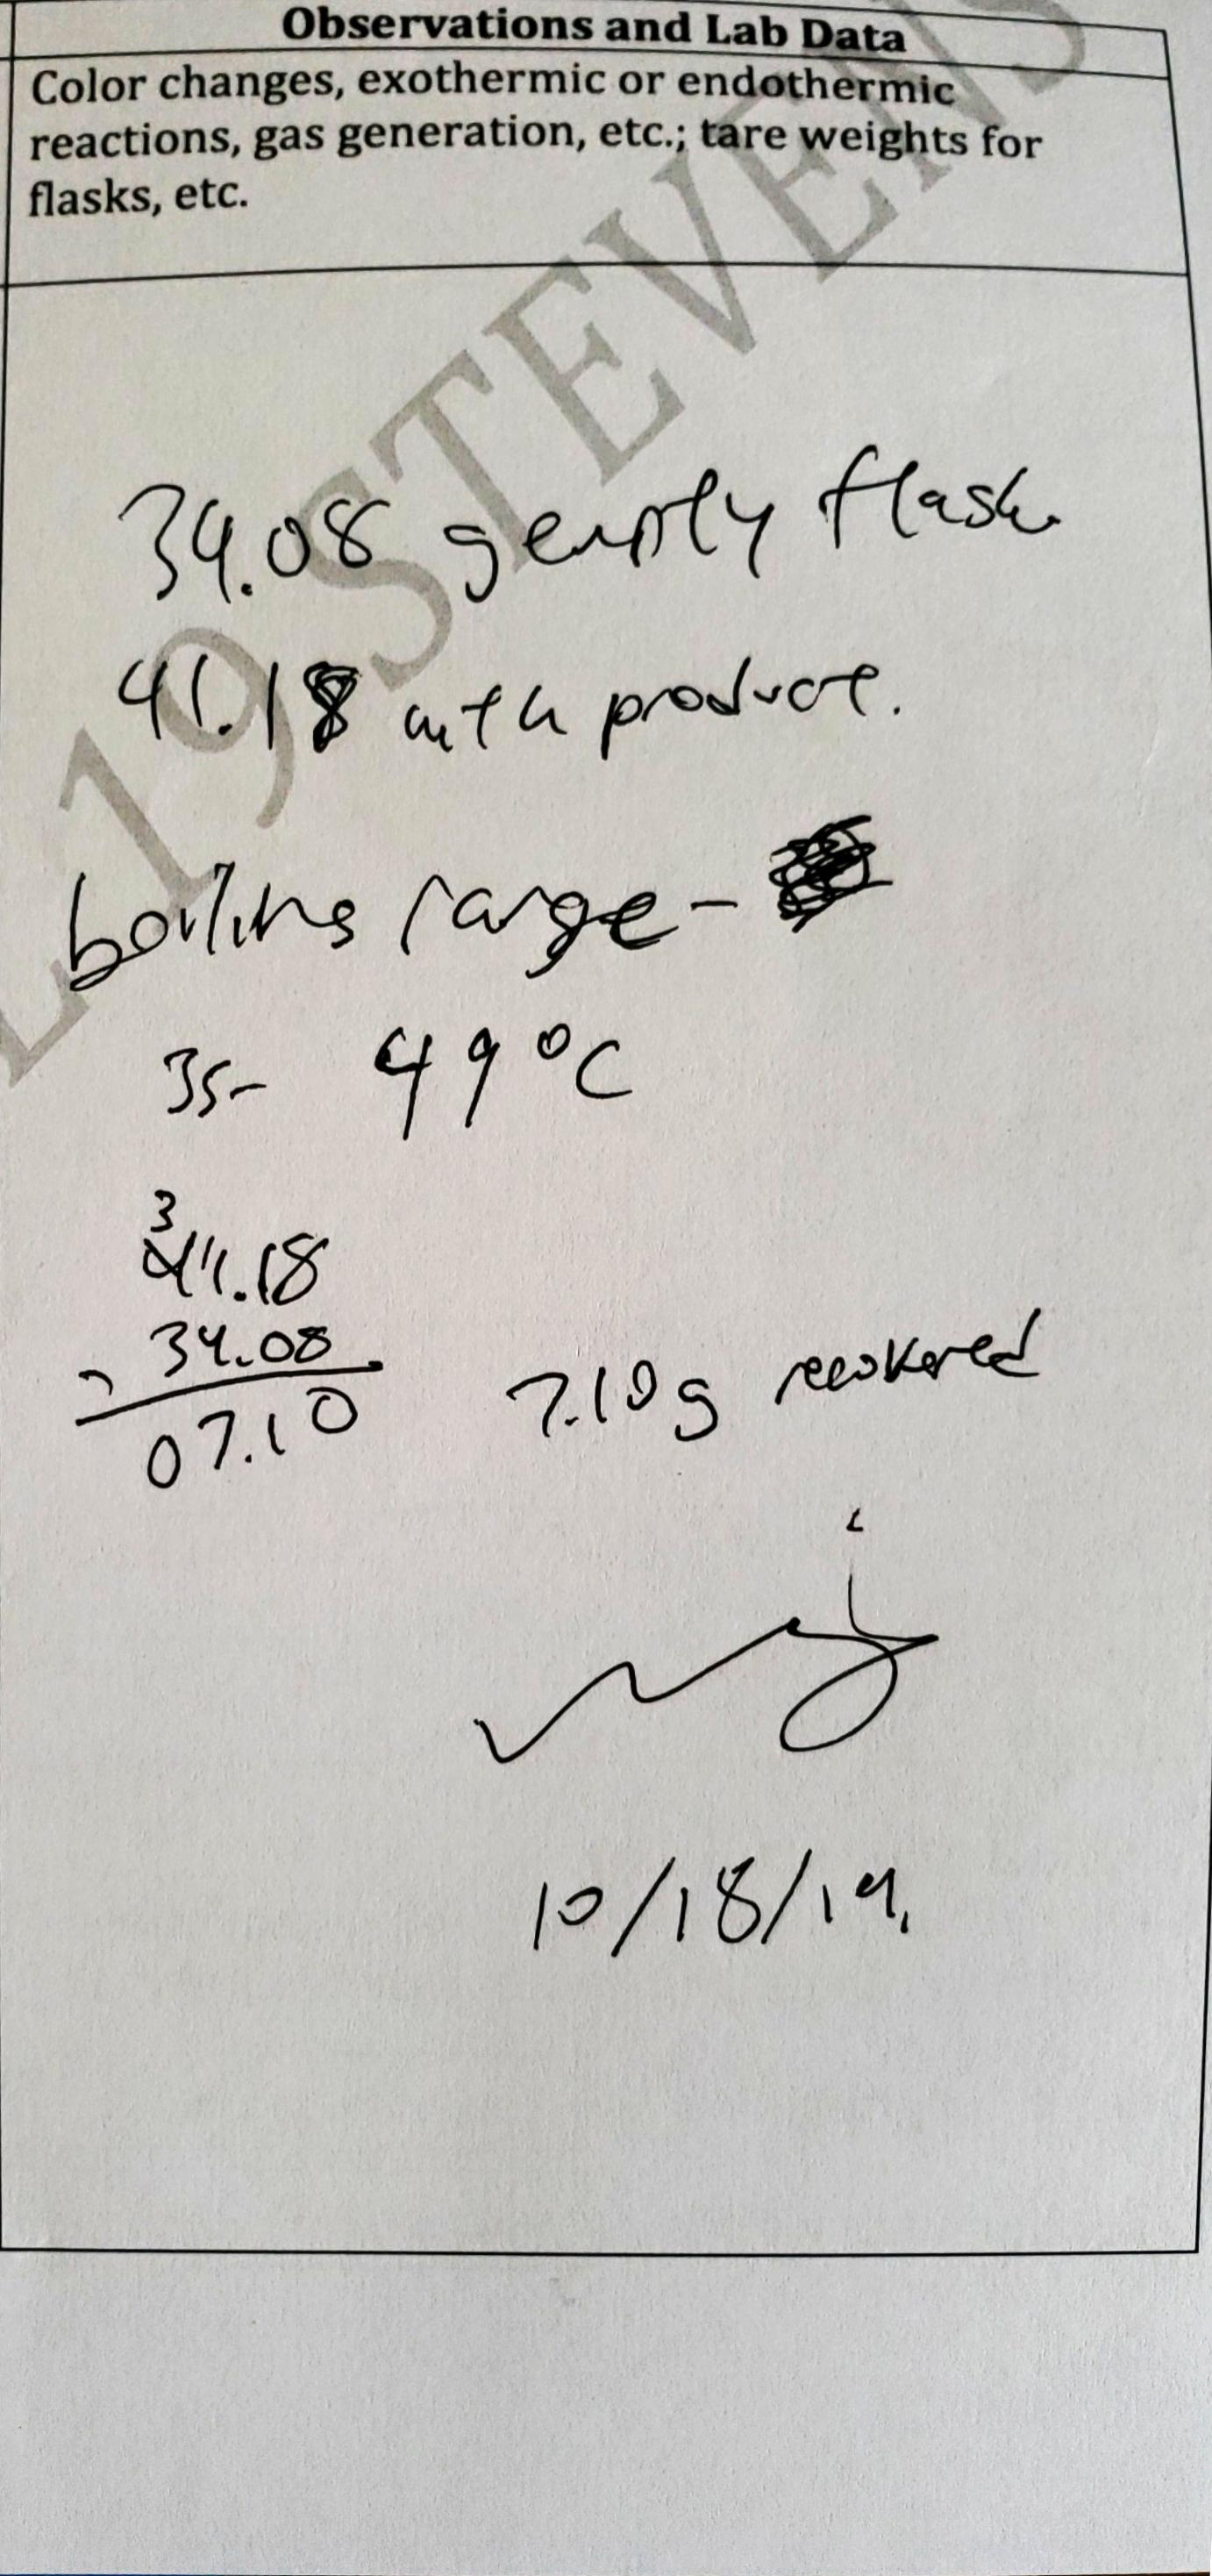 Observations and Lab Data
Color changes, exothermic or endothermic
reactions, gas generation, etc.; tare weights for
flasks, etc.
L 19 STEVENS
34.08 g empty flask
41.18 with product.
boiling range -
35- 49 °C
3
41.18
- 34.08
07.10
7.10 g recovered
10/18/19